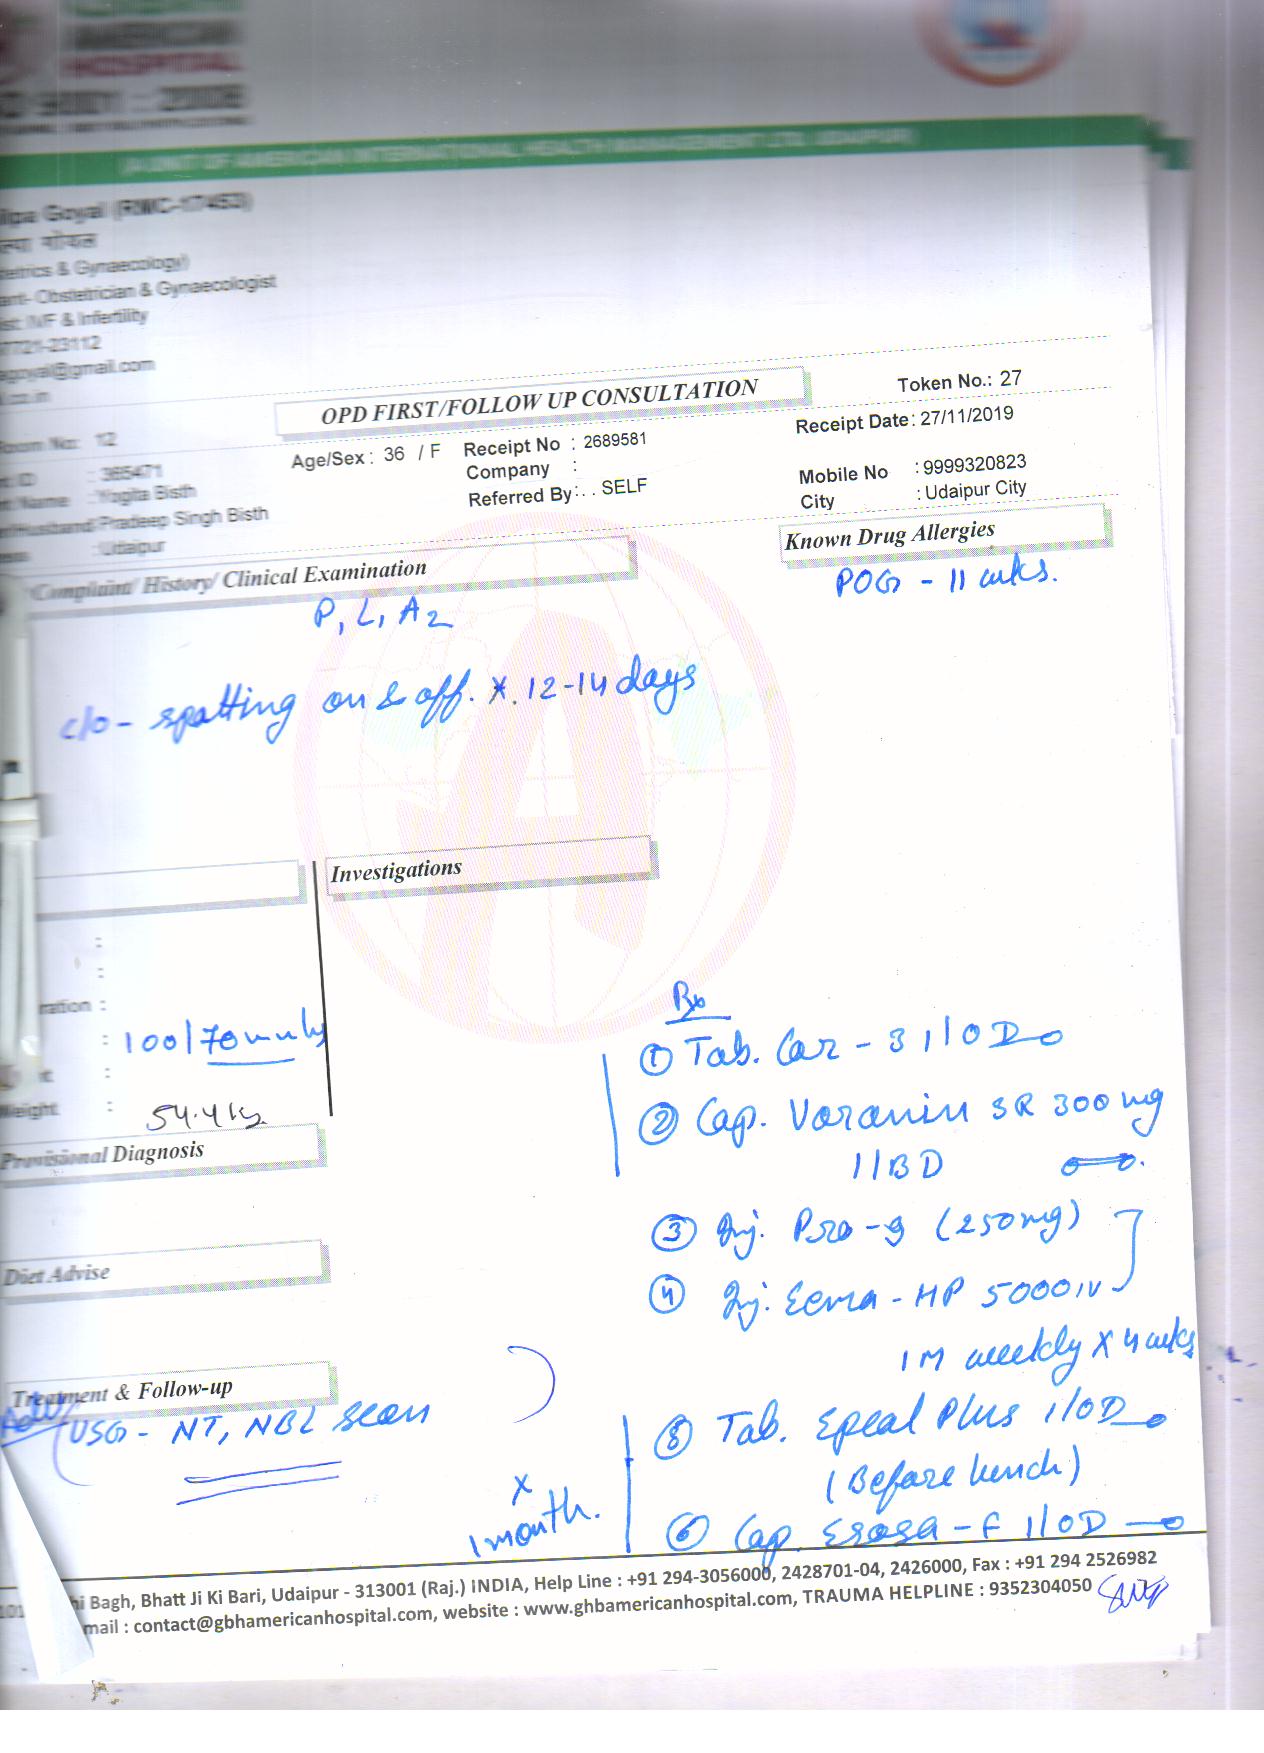 AMERICAN
HOSPITAL
9001 : 2008
(A UNIT OF AMERICAN INTERNATIONAL HEALTH MANAGEMENT LTD. UDAIPUR)
lpa Goyal (RMC-17453)
गोयल
etrics & Gynaecology)
ant- Obstetrician & Gynaecologist
ist: IVF & Infertility
7721-23112
goyal@gmail.com
.co.in
OPD FIRST/FOLLOW UP CONSULTATION
Token No.: 27
Room No: 12
Age/Sex : 36 / F
Receipt No : 2689581
Receipt Date : 27/11/2019
ID : 365471
Company :
Mobile No : 9999320823
Name : Yogita Bisth
Referred By : . . SELF
City : Udaipur City
Husband Pradeep Singh Bisth
: Udaipur
Complaint/ History/ Clinical Examination
Known Drug Allergies
P1 L1 A2
POG - 11 wks.
c/o - spotting on & off. x. 12-14 days
Investigations
:
:
ration :
: 100/70 mmHg
:
Weight : 54.4 kg.
Provisional Diagnosis
Diet Advise
Treatment & Follow-up
Adv
USG - NT, NBL scan
Rx
① Tab. Car - 3 1/OD
② Cap. Voranin SR 300 mg
1/BD
③ Inj. Pro-g (250mg)
④ Inj. Ecma - HP 5000 IU
IM weekly x 4 wks
⑤ Tab. Epeal Plus 1/OD
(Before lunch)
⑥ Cap. Esosa - F 1/OD
x
1 month.
101 hi Bagh, Bhatt Ji Ki Bari, Udaipur - 313001 (Raj.) INDIA, Help Line : +91 294-3056000, 2428701-04, 2426000, Fax : +91 294 2526982
mail : contact@gbhamericanhospital.com, website : www.ghbamericanhospital.com, TRAUMA HELPLINE : 9352304050